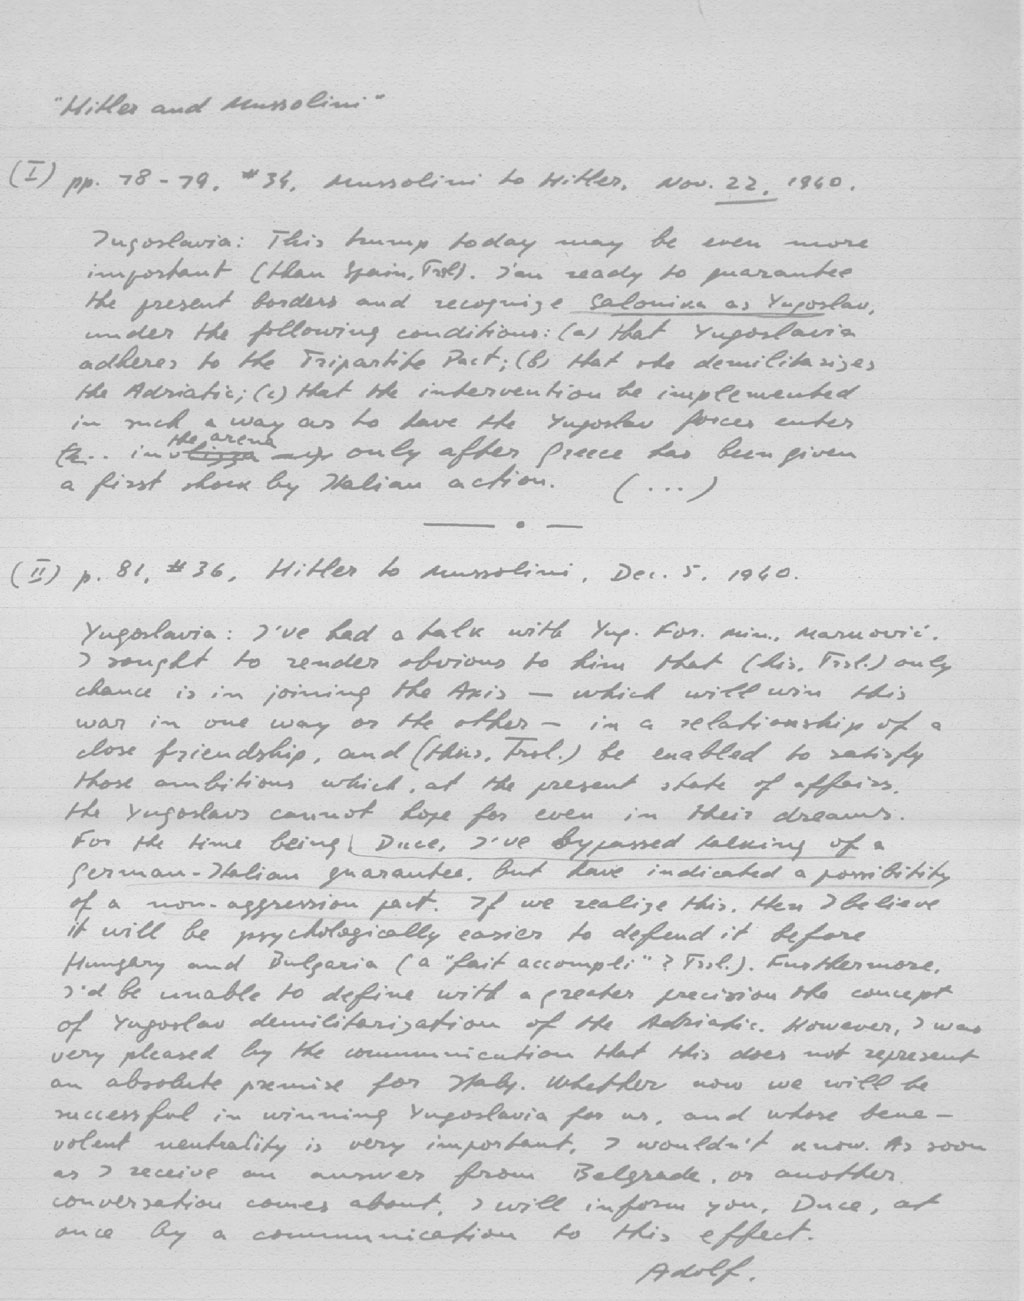 "Hitler and Mussolini"
(I) pp. 78-79, #34, Mussolini to Hitler, Nov. 22, 1940.
Yugoslavia: This trump today may be even more
important (than Spain, Trsl). I'm ready to guarantee
the present borders and recognize Salonika as Yugoslav,
under the following conditions: (a) that Yugoslavia
adheres to the Tripartite Pact; (b) that she demilitarizes
the Adriatic; (c) that the intervention be implemented
in such a way as to have the Yugoslav forces enter
the arena
in only after Greece has been given
a first shock by Italian action. (...)
(II) p. 81, #36, Hitler to Mussolini, Dec. 5, 1940.
Yugoslavia: I've had a talk with Yug. For. Min., Marković.
I sought to render obvious to him that (his, Trsl.) only
chance is in joining the Axis – which will win this
war in one way or the other – in a relationship of a
close friendship, and (thus, Trsl.) be enabled to satisfy
those ambitions which, at the present state of affairs,
the Yugoslavs cannot hope for even in their dreams.
For the time being Duce, I've bypassed talking of a
German-Italian guarantee, but have indicated a possibility
of a non-aggression pact. If we realize this, then I believe
it will be psychologically easier to defend it before
Hungary and Bulgaria (a "fait accompli"? Trsl.). Furthermore,
I'd be unable to define with a greater precision the concept
of Yugoslav demilitarization of the Adriatic. However, I was
very pleased by the communication that this does not represent
an absolute premise for Italy. Whether now we will be
successful in winning Yugoslavia for us, and whose bene-
volent neutrality is very important, I wouldn't know. As soon
as I receive an answer from Belgrade, or another
conversation comes about, I will inform you, Duce, at
once by a communication to this effect.
Adolf.